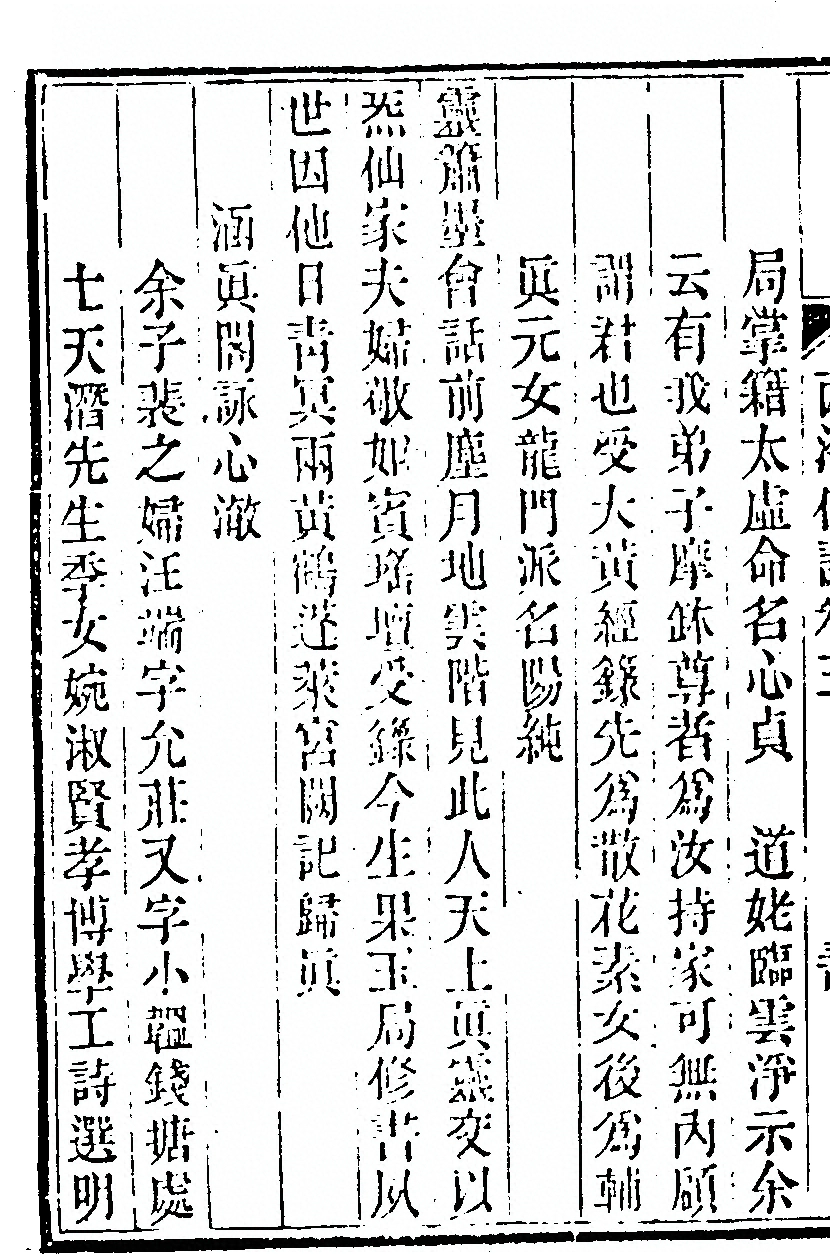 局掌籍太虛命名心貞　道姥臨雲淨示余
云有我弟子摩鉢尊者為汝持家可無內顧
謂君也受大黃經籙先為散花素女後為輔
眞元女龍門派名陽純
靈簫墨會話前塵月地雲階見此人天上眞靈交以
炁仙家夫婦敬如賓瑤壇受籙今生果玉局修書夙
世因他日靑冥兩黃鶴蓬萊宮闕記歸眞
涵眞閣詠心澈
余子裴之婦汪端字允莊又字小韞錢塘處
士天潛先生季女婉淑賢孝博學工詩選明